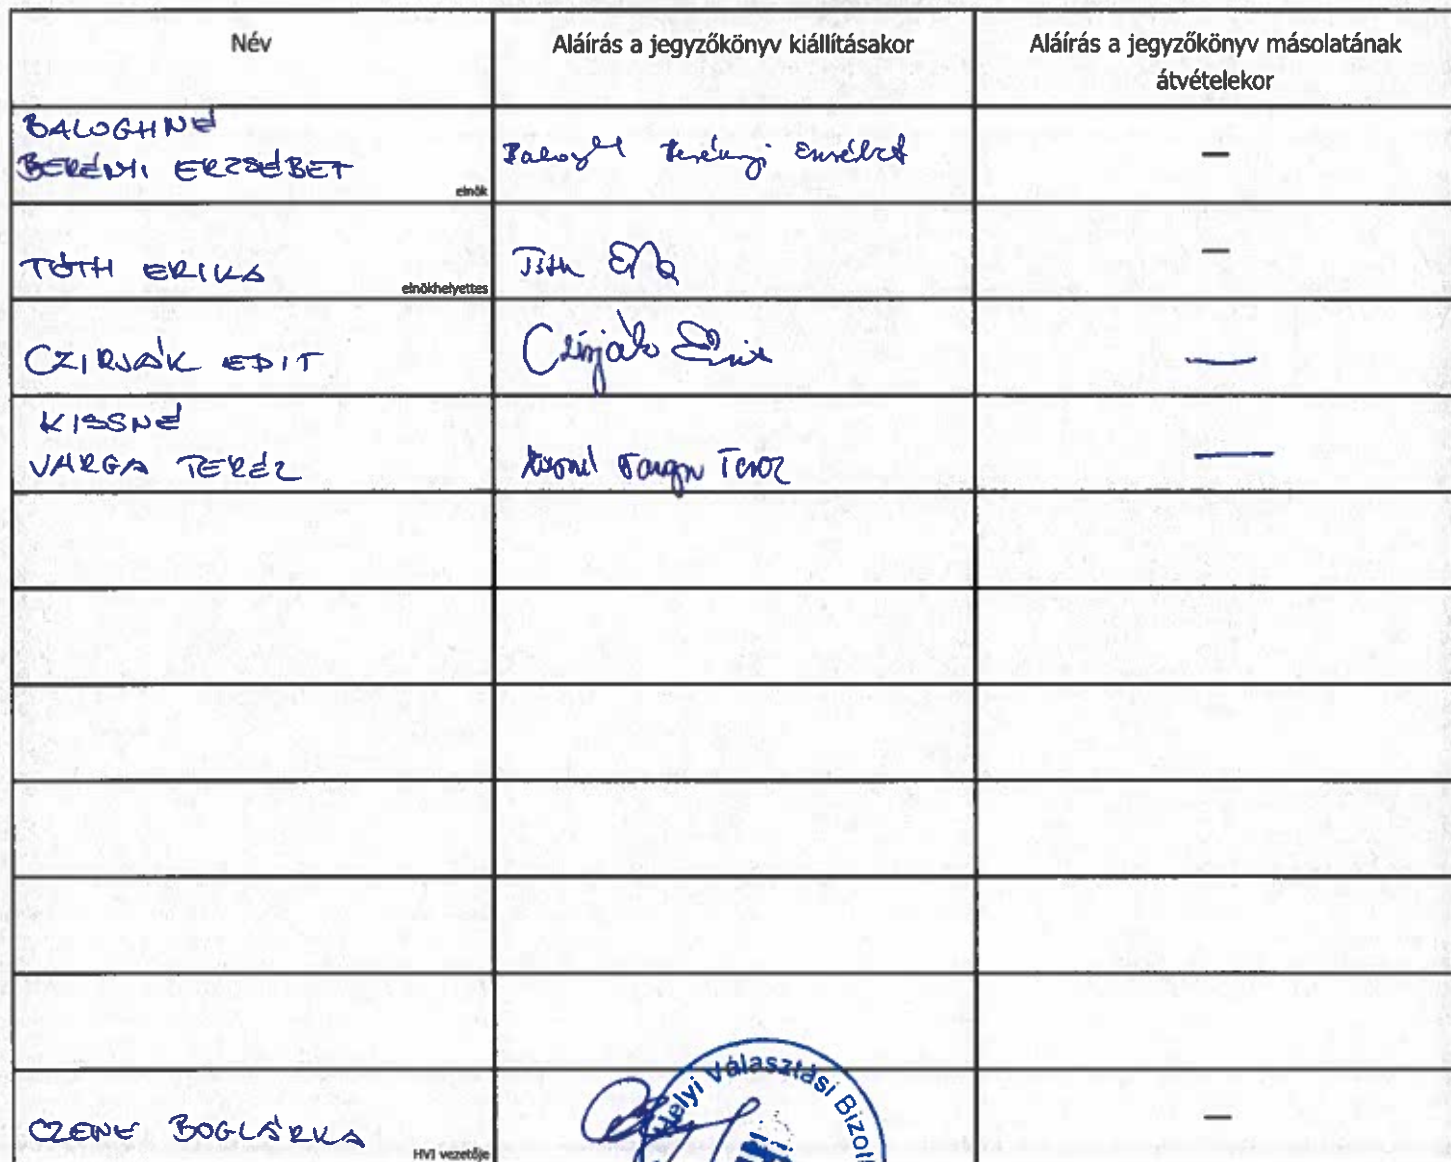 Név
Aláírás a jegyzőkönyv kiállításakor
Aláírás a jegyzőkönyv másolatának
átvételekor
BALOGHNÉ
BERÉNYI ERZSÉBET
elnök
TÓTH ERIKA
elnökhelyettes
Tóth
CZIRJÁK EDIT
Czirják Edit
KISSNÉ
VARGA TERÉZ
Kissné Varga Teréz
CZENE BOGLÁRKA
HVI vezetője
elyi Választási Bizott